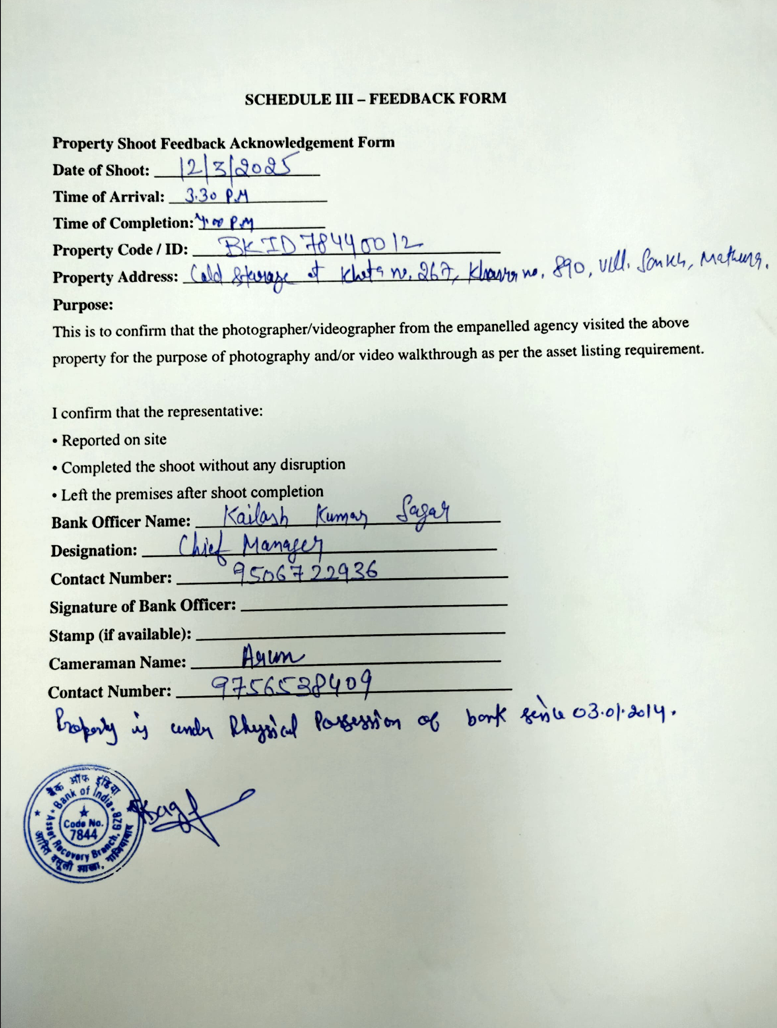 SCHEDULE III – FEEDBACK FORM
Property Shoot Feedback Acknowledgement Form
Date of Shoot: 12/3/2025
Time of Arrival: 3.30 P.M
Time of Completion: 4:00 P.M
Property Code / ID: BKID78440012
Property Address: Cold Storage at Khata no. 267, Khasra no. 890, Vill. Sonkh, Mathura.
Purpose:
This is to confirm that the photographer/videographer from the empanelled agency visited the above
property for the purpose of photography and/or video walkthrough as per the asset listing requirement.
I confirm that the representative:
• Reported on site
• Completed the shoot without any disruption
• Left the premises after shoot completion
Bank Officer Name: Kailash Kumar Sagar
Designation: Chief Manager
Contact Number: 9506722936
Signature of Bank Officer:
Stamp (if available):
Cameraman Name: Arun
Contact Number: 9756538409
Property is under Physical Possession of bank since 03.01.2014.
बैंक ऑफ इंडिया
Bank of India
Code No.
7844
Asset Recovery Branch, GZB
आस्ति वसूली शाखा, गाजियाबाद